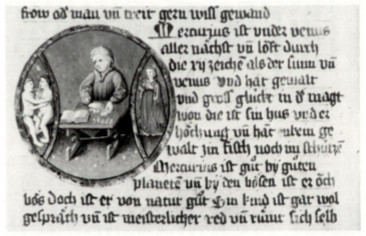 frow od man vn̄ treit gern wiss gewand
Mercurius ist vnder venus
aller nächst vn̄ löft durch
die xij zeichē als der sunn vn̄
venus vnd hat gewalt
vnd gross glück in der magt
won die ist sin hus vn̄ der
höchung vn̄ hat gewalt jm
fisch noch im schützē
Mercurius ist gůt by gůten
planetē vn̄ by den bösen ist er öch
bös doch ist er von natur gůt Sin kind ist gar wol
gespräch vn̄ ist meisterlicher red vn̄ rümt sich selb